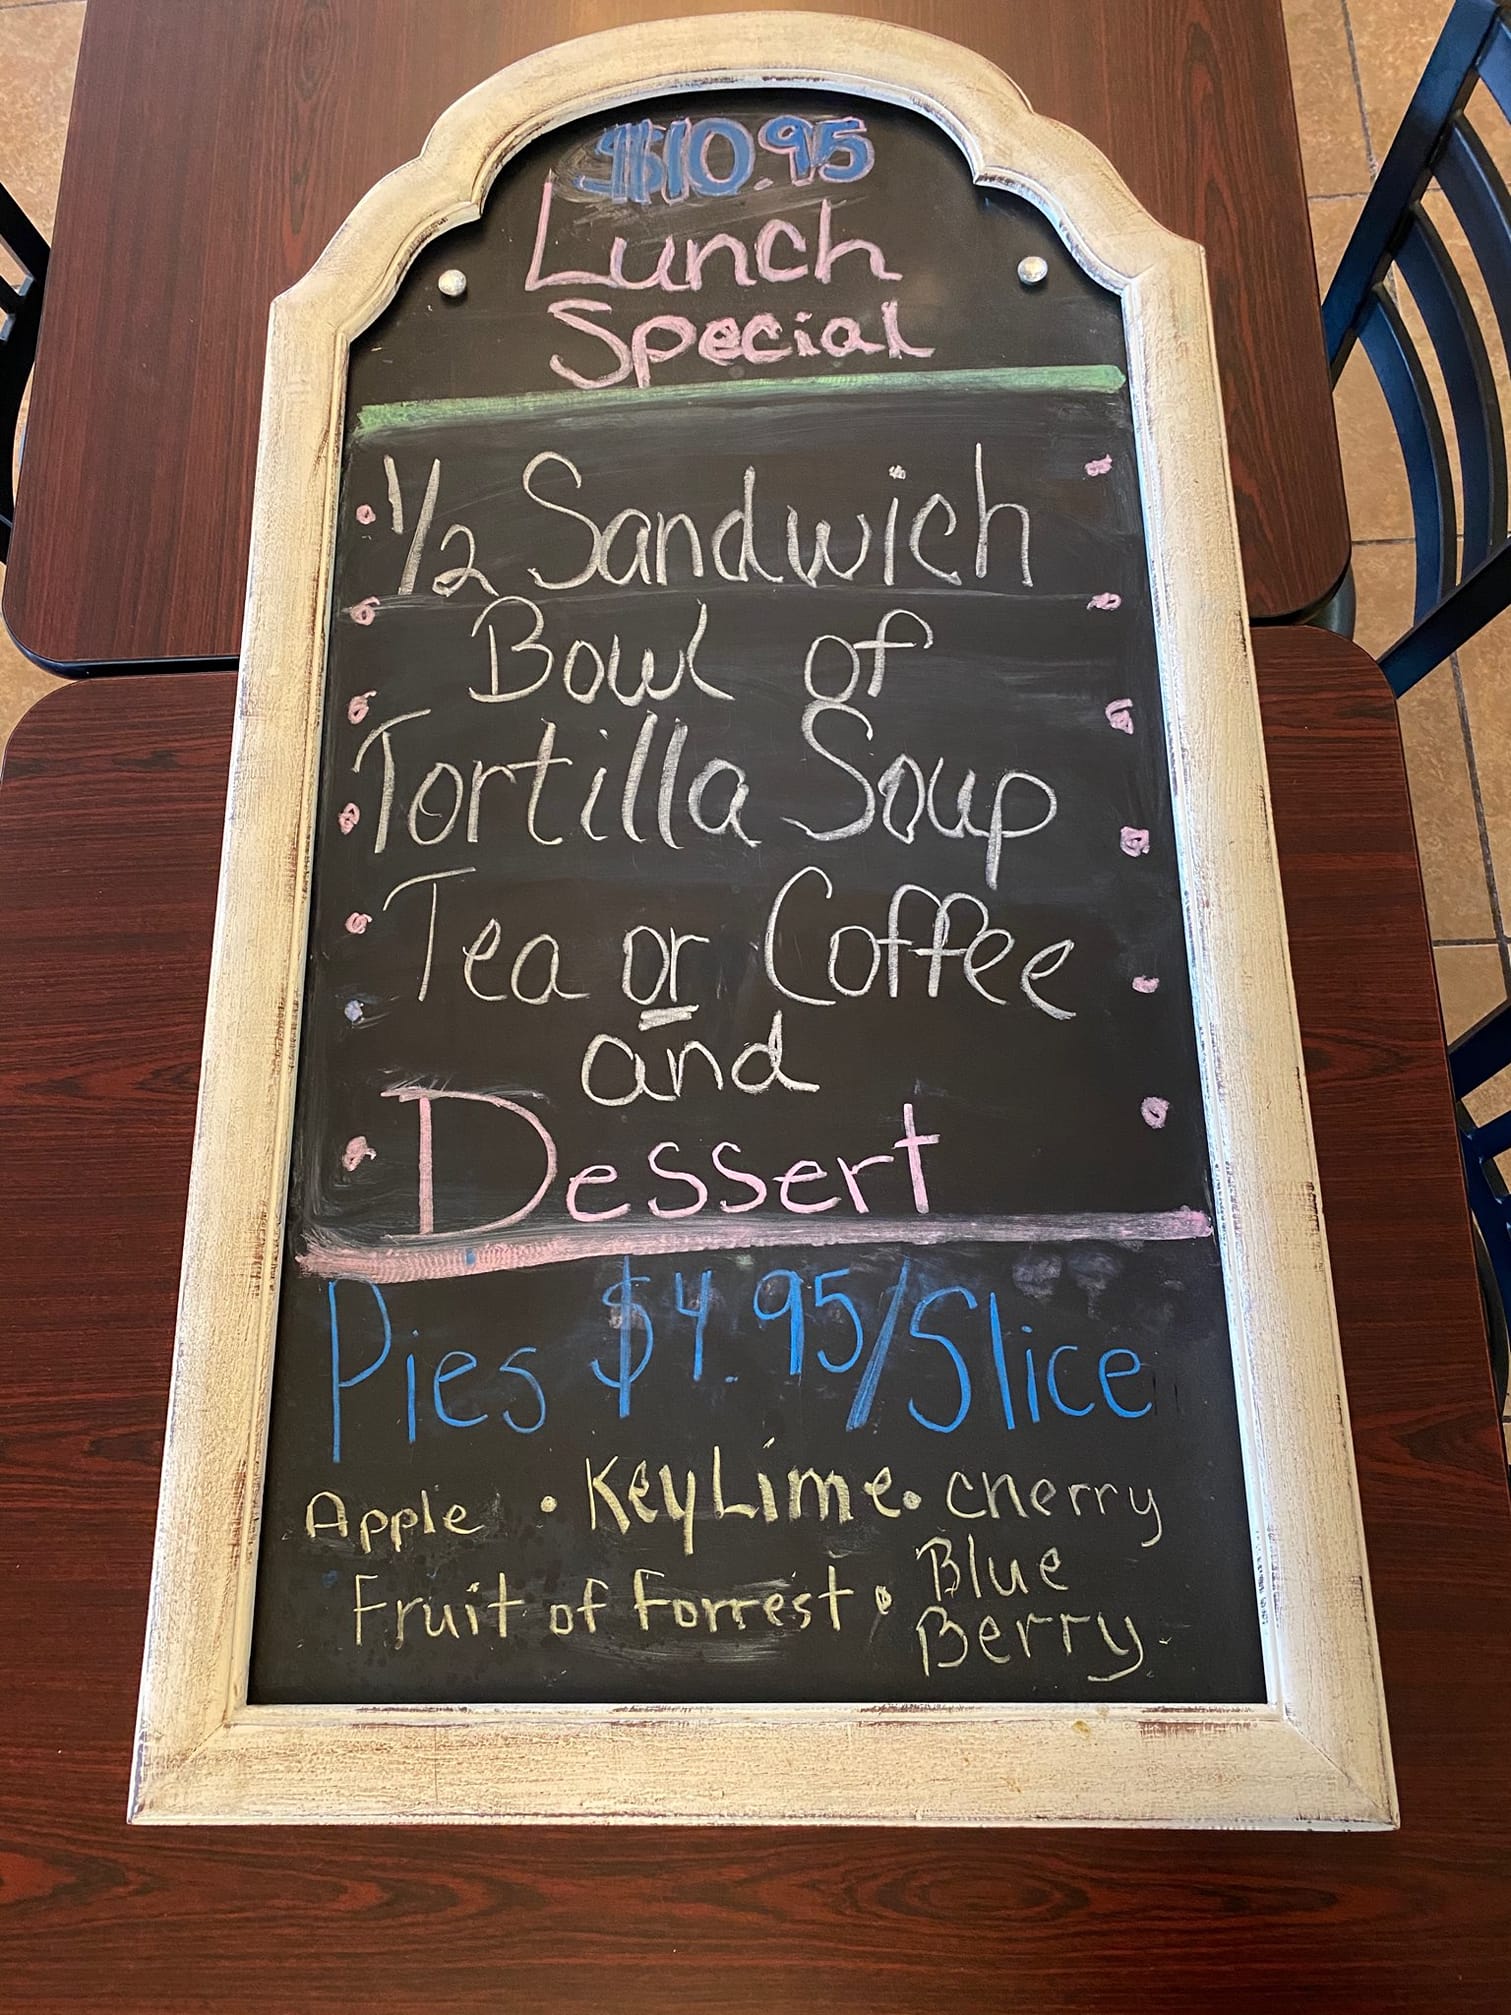 $10.95
Lunch
Special
1/2 Sandwich
Bowl of
Tortilla Soup
Tea or Coffee
and
Dessert
Pies $4.95/Slice
Apple • Key Lime • Cherry
Fruit of Forrest • Blue
Berry